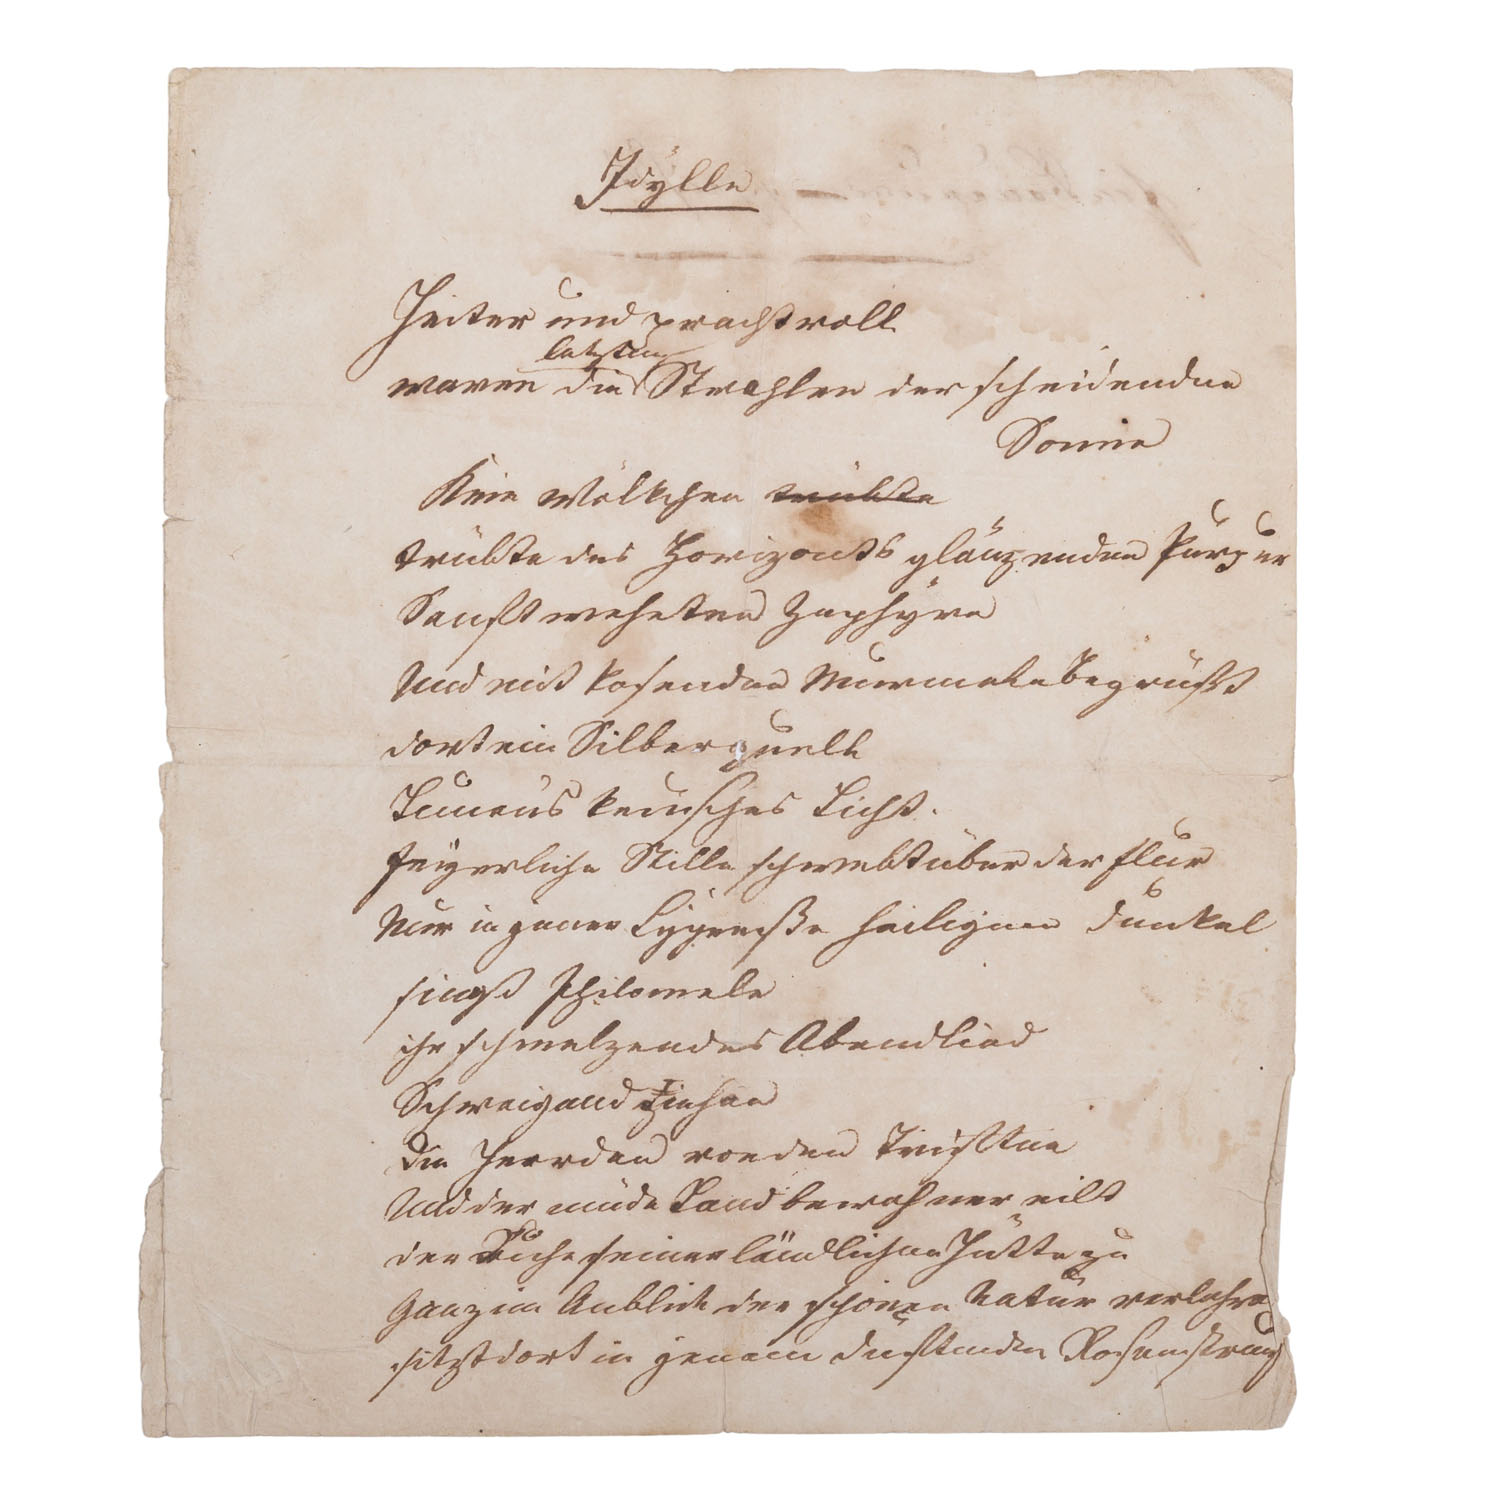 Idylle
Heiter und prachtvoll
letzten
waren die Strahlen der scheidenden
Sonne
Kein Wölkchen trübte
trübte des Horizonts glänzenden Purpur
Sanft weheten Zephyre
Und mit kosenden Murmeln begrüßt
dort ein Silberquell
Lunens keusches Licht.
feyerliche Stille schwebt über der flur
Nur in jener Cypresse heiligen dunkel
singt Philomele
ihr schmelzendes Abendlied
Schweigend ziehen
die Heerden von den Triften
Und der müde Landbewohner eilt
der Ruhe seiner ländlichen Hütte zu
Ganz im Anblick der schönen Natur verlohren
sitzt dort in jenem duftenden Rosenstrauch